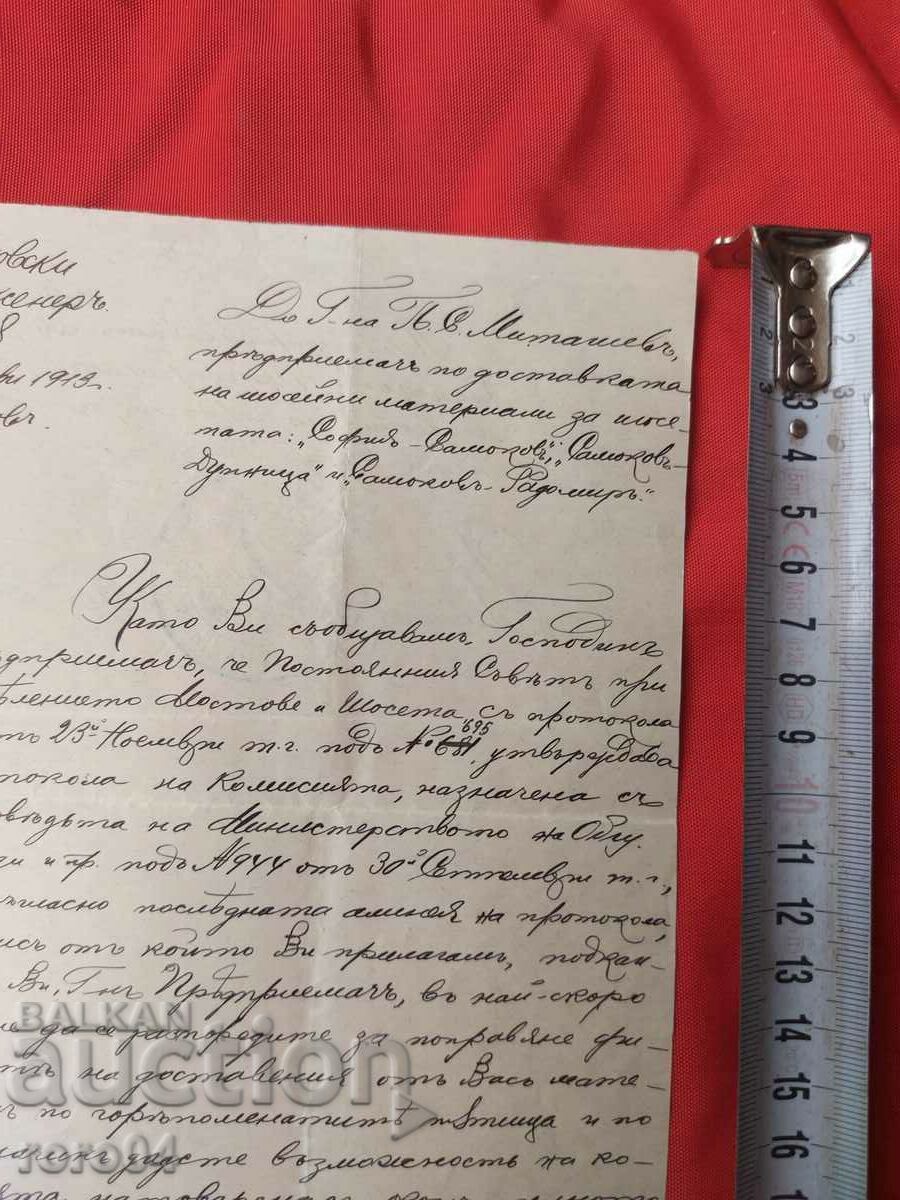 овски
женеръ
8
ври 1913 г.
овъ.
До Г-на П. С. Миташевъ,
прѣдприемачъ по доставката
на шосейни материали за шосе-
тата: „София - Самоковъ“, „Самоковъ-
Дупница“ и „Самоковъ - Радомиръ.“
Като Ви съобщавамъ, Господинъ
дприемачъ, че Постоянния Съвѣтъ при
ѣлението Мостове и Шосета, съ протокола
отъ 23й Ноемврий т. г. подъ № 681 695, утвърдява
токола на комисията, назначена съ
овѣдьта на Министерството на Общ.
ди и пр. подъ № 944 отъ 30й Септемврий т. г.,
ъгласно послѣдната алинея на протокола,
ись отъ който Ви прилагамъ, подкан-
Ви, Г-нъ Прѣдприемачъ, въ най-скоро
ме да се разпоредите за поправяне фи-
тѣ на доставения отъ Васъ мате-
ъ по горѣпоменатитѣ пѫтища и по
начинъ дадете възможность на ко-
BALKAN
auction
rero94
2 2
3 3
3
4
5
6
7
8
9
10
11
12
13
14
15
16